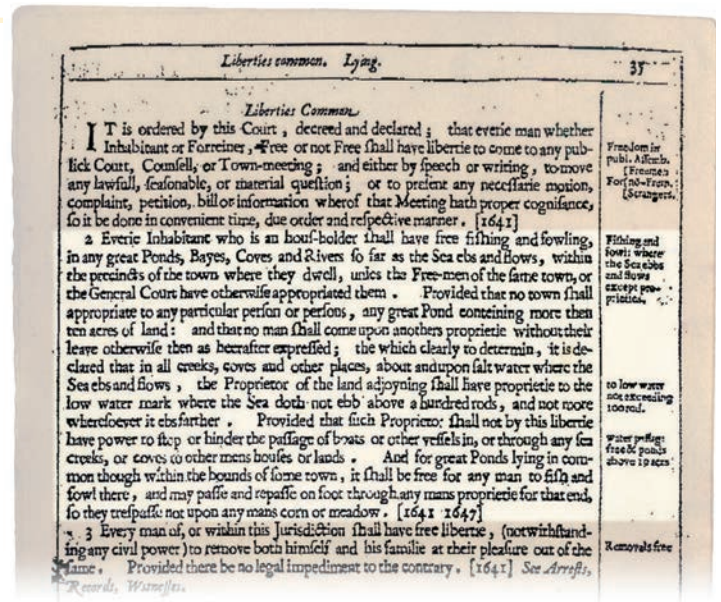 Liberties common. Lying. 35
Liberties Common.
IT is ordered by this Court, decreed and declared; that everie man whether
Inhabitant or Forreiner, Free or not Free shall have libertie to come to any pub-
lick Court, Counsell, or Town-meeting; and either by speech or writing, to move
any lawfull, seasonable, or material question; or to present any necessarie motion,
complaint, petition, bill or information wherof that Meeting hath proper cognisance,
so it be done in convenient time, due order and respective manner. [1641]
2 Everie Inhabitant who is an hous-holder shall have free fishing and fowling,
in any great Ponds, Bayes, Coves and Rivers so far as the Sea ebs and flows, within
the precincts of the town where they dwell, unles the Free-men of the same town, or
the General Court have otherwise appropriated them. Provided that no town shall
appropriate to any particular person or persons, any great Pond conteining more then
ten acres of land: and that no man shall come upon anothers proprietie without their
leave otherwise then as heerafter expressed; the which clearly to determin, it is de-
clared that in all creeks, coves and other places, about and upon salt water where the
Sea ebs and flows, the Proprietor of the land adjoyning shall have proprietie to the
low water mark where the Sea doth not ebb above a hundred rods, and not more
wheresoever it ebs farther. Provided that such Proprietor shall not by this libertie
have power to stop or hinder the passage of boats or other vessels in, or through any sea
creeks, or coves to other mens houses or lands. And for great Ponds lying in com-
mon though within the bounds of some town, it shall be free for any man to fish and
fowl there, and may passe and repasse on foot through any mans proprietie for that end,
so they trespasse not upon any mans corn or meadow. [1641 1647]
3 Every man of, or within this Jurisdiction shall have free libertie, (notwithstand-
ing any civil power) to remove both himself and his familie at their pleasure out of the
same. Provided there be no legal impediment to the contrary. [1641] See Arrests,
Records, Witnesses.
Freedom in
publ. Assemb.
[Freemen
[Strangers.
Fishing and
fowls where
the Sea ebbs
and flows
except pro-
prieties.
to low water
not exceeding
100 rod.
Water passage
free & ponds
above 10 acrs
Removals free